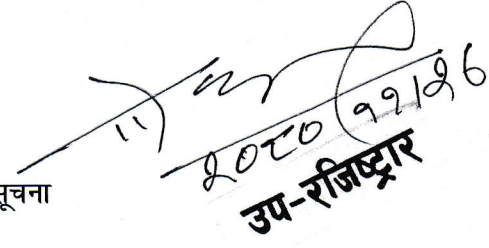 २०८०।११।२६
उप-रजिष्ट्रार
सूचना